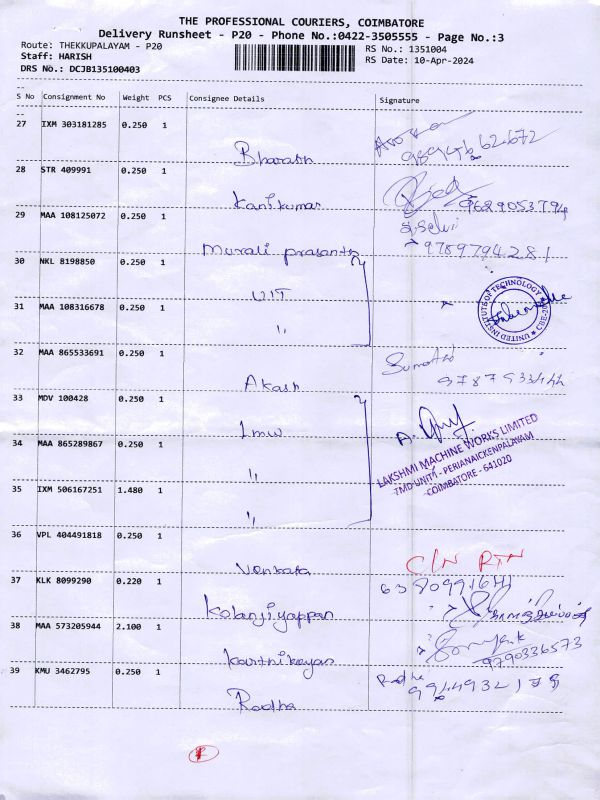 THE PROFESSIONAL COURIERS, COIMBATORE
Delivery Runsheet - P20 - Phone No.:0422-3505555 - Page No.:3
Route: THEKKUPALAYAM - P20
RS No.: 1351004
Staff: HARISH
RS Date: 10-Apr-2024
DRS No.: DCJB135100403
S No Consignment No Weight PCS Consignee Details Signature
27 IXM 303181285 0.250 1
Bharath
28 STR 409991 0.250 1
Kanikumar 9689053794
29 MAA 108125072 0.250 1
S. Selvi
Murali prasanth 9789794281
30 NKL 8198850 0.250 1
UIT
UNITED INSTITUTE OF TECHNOLOGY
31 MAA 108316678 0.250 1
"
32 MAA 865533691 0.250 1
Akash
33 MDV 100428 0.250 1
Lmw
A.
34 MAA 865289867 0.250 1
LAKSHMI MACHINE WORKS LIMITED
TMD UNIT II - PERIANAICKENPALAYAM
COIMBATORE - 641020
"
35 IXM 506167251 1.480 1
"
36 VPL 404491818 0.250 1
Venkata C/N RTN
37 KLK 8099290 0.220 1
Kolanjiyappan
38 MAA 573205944 2.100 1
Karthikeyan 9790336573
39 KMU 3462795 0.250 1
Radha
Radha